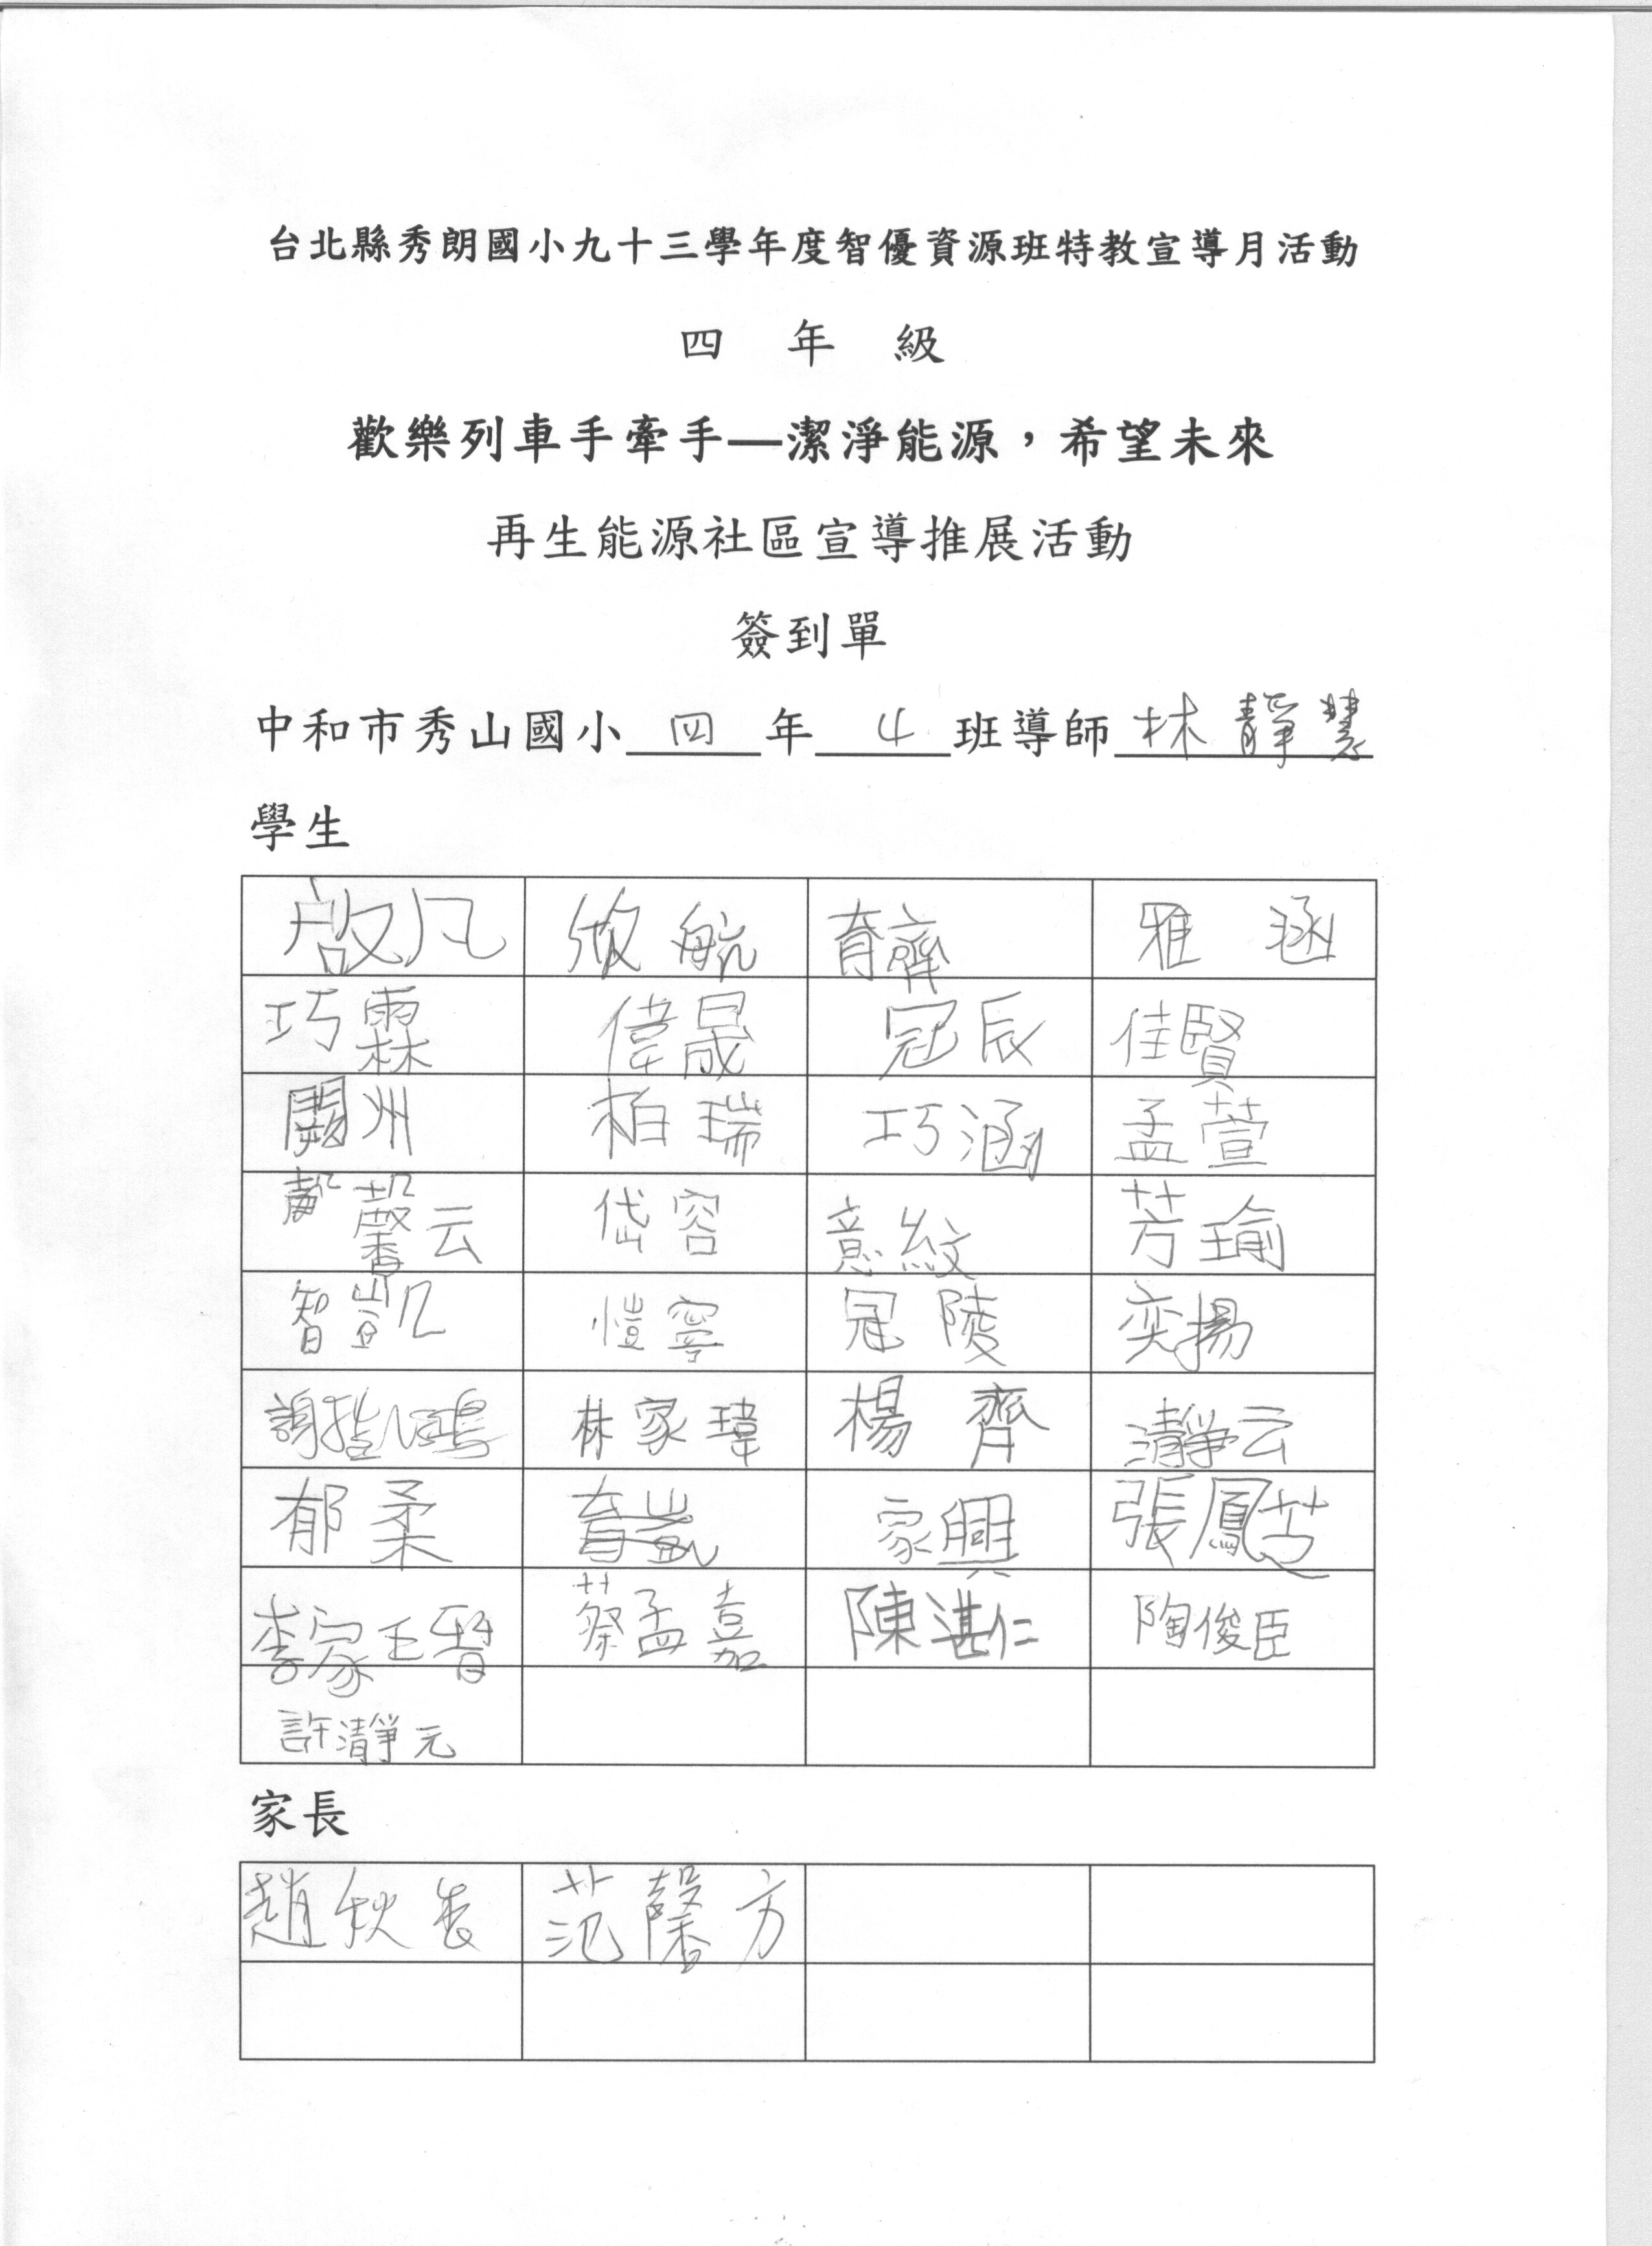 台北縣秀朗國小九十三學年度智優資源班特教宣導月活動
四 年 級
歡樂列車手牽手—潔淨能源，希望未來
再生能源社區宣導推展活動
簽到單
中和市秀山國小 四 年 4 班導師 林靜慧
學生
啟凡 航 育齊 雅涵
巧霖 偉晟 冠辰 佳賢
闕州 柏瑞 巧涵 孟萱
馨云 岱容 意紋 芳瑜
智凱 愷寧 冠陵 奕揚
謝鴻 林家瑋 楊齊 瀞云
郁柔 育凱 家興 張鳳芝
李家 蔡孟嘉 陳湛仁 陶俊臣
許瀞元
家長
趙秋香 范馨方